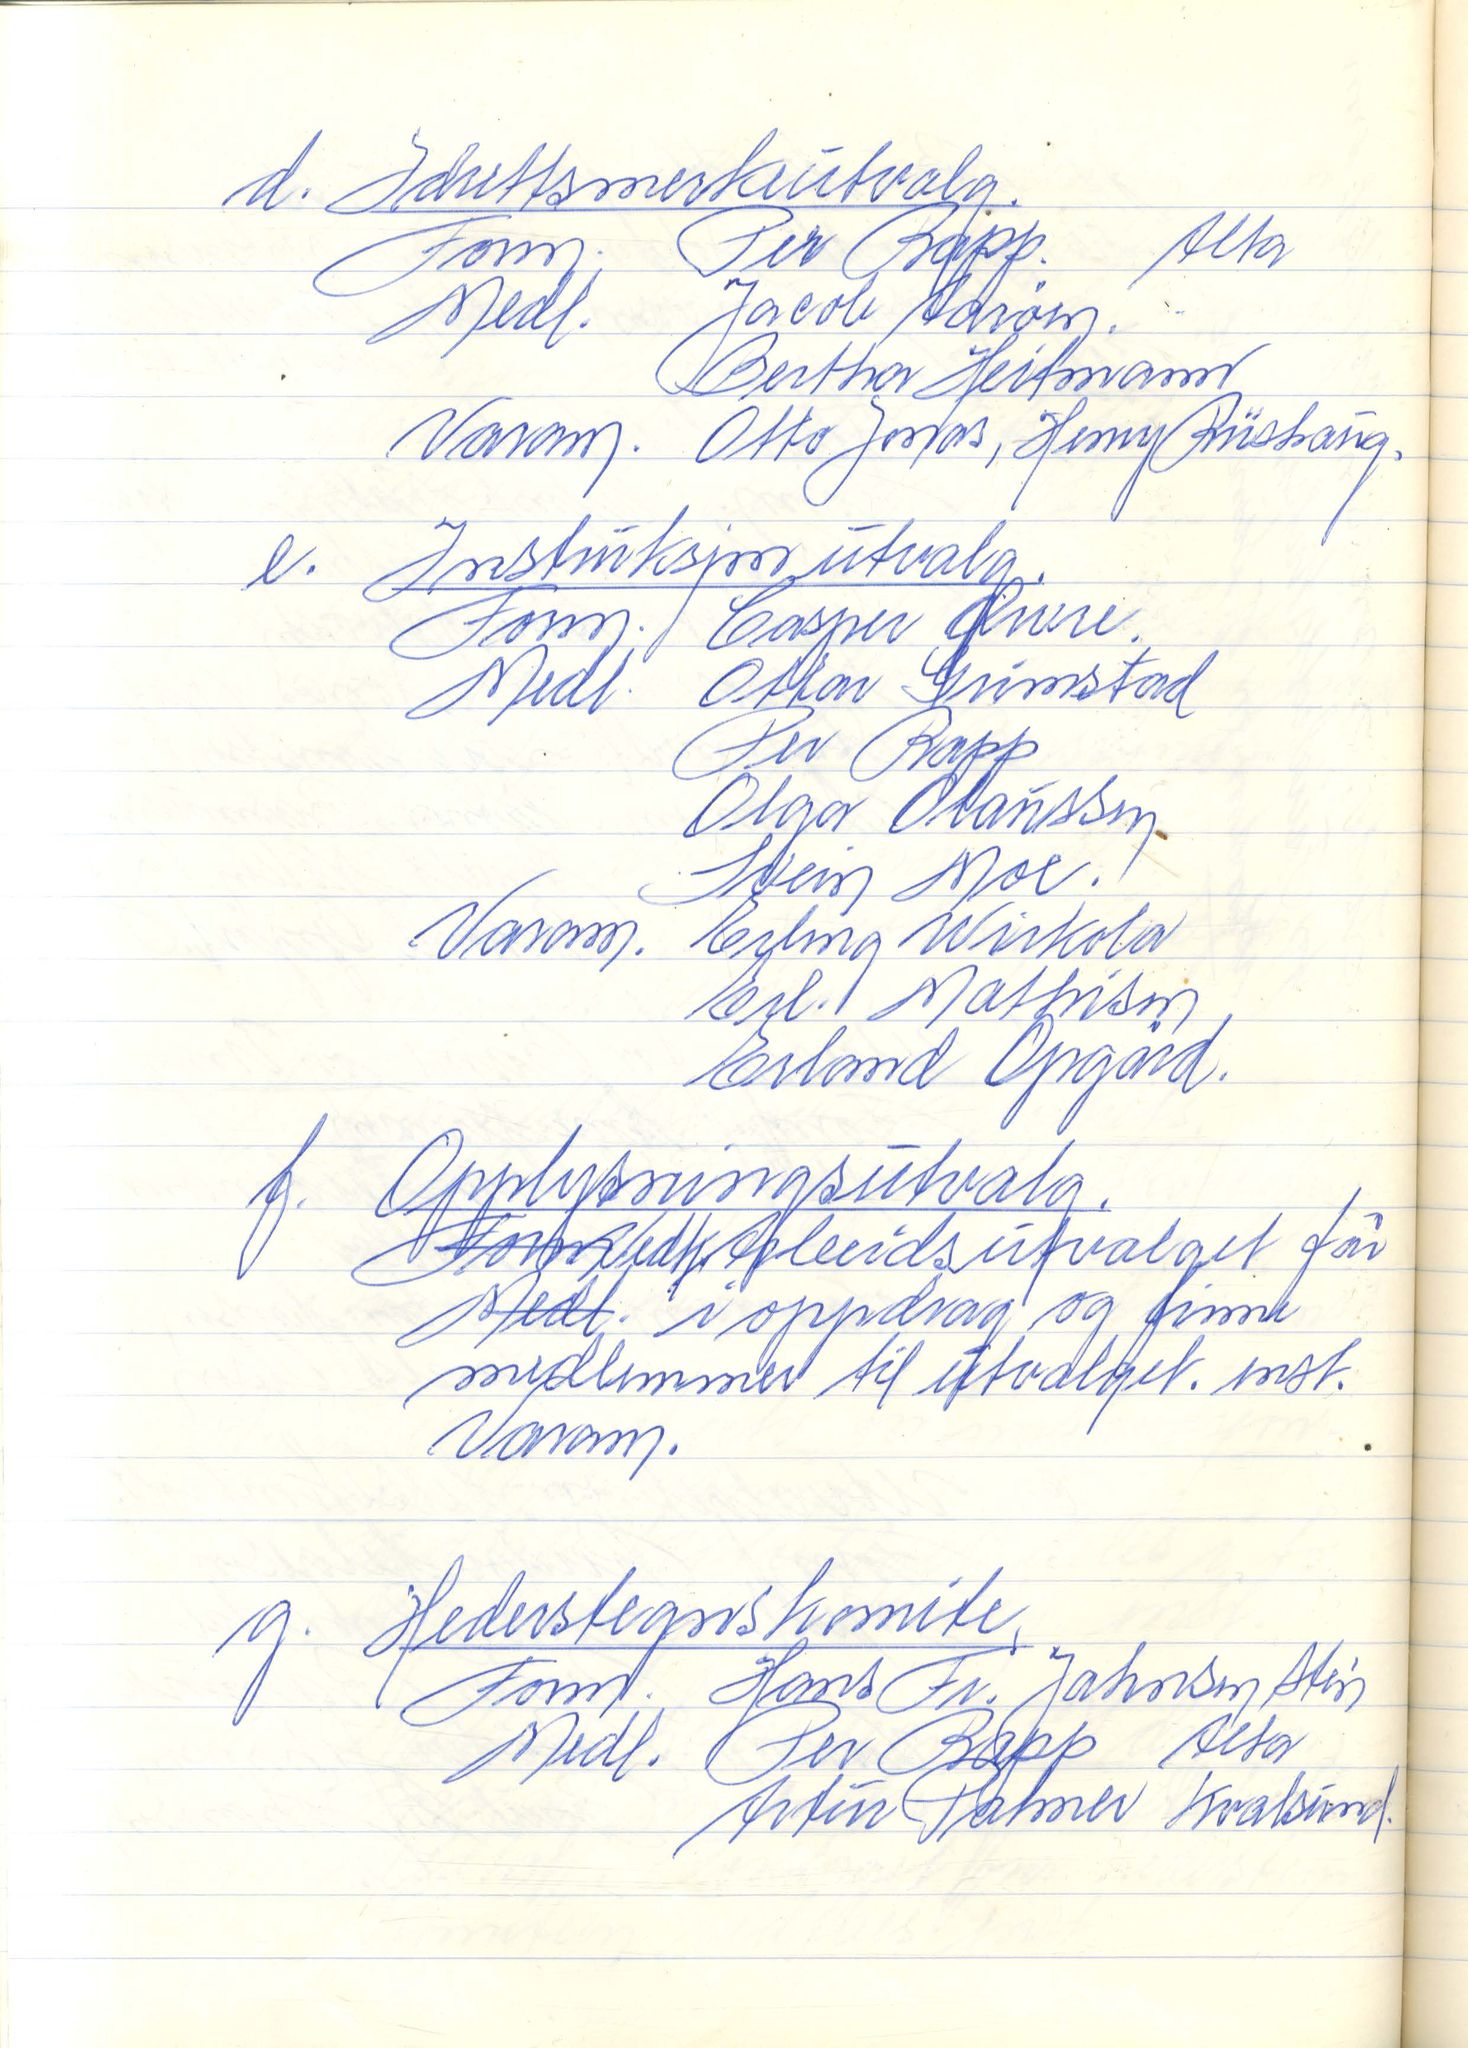 d. Idrettsmerkeutvalg.
Form. Per Rapp. Alta
Medl. Jacob
Bertha Heitmann
Varam. Otto Jonas, Henry
e. Instuksjonutvalg.
Form. Casper
Medl. Ottar Grimstad
Per Rapp
Olga Olaussen
Svein Moe.
Varam. Erling Wirkola
Erl. Mathisen
Erland Opgård.
f. Opplysningsutvalg.
Form. Vedk. Arbeidsutvalget får
Medl. i oppdrag og finne
medlemmer til utvalget. enst.
Varam.
g. Hederstegnskomite.
Form. Hans Fr. Jahnsen Stein
Medl. Per Rapp Alta
Artur Palmer Kvalsund.